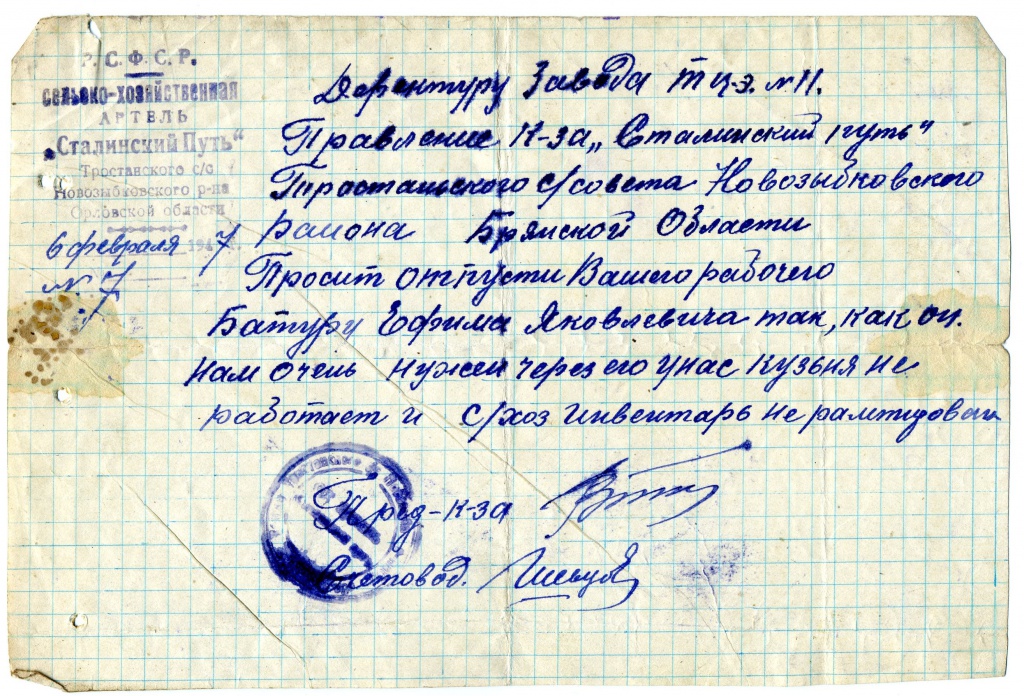 Р.С.Ф.С.Р.
сельско-хозяйственная
АРТЕЛЬ
„Сталинский Путь“
Тростанского с/с
Новозыбковского р-на
Орловской области
6 февраля 1947
№ 7
Деректуру Завода тцэ. № 11.
Правление К-за „Сталинский путь“
Тростаньского с/совета Новозыбковского
Района Брянской Области
Просит отпусти Вашего рабочего
Батуру Ефима Яковлевича так, как он.
нам очень нужен через его унас кузьня не
работает и с/хоз инвентарь не рамтирован
Пред-к-за
Счетовод.